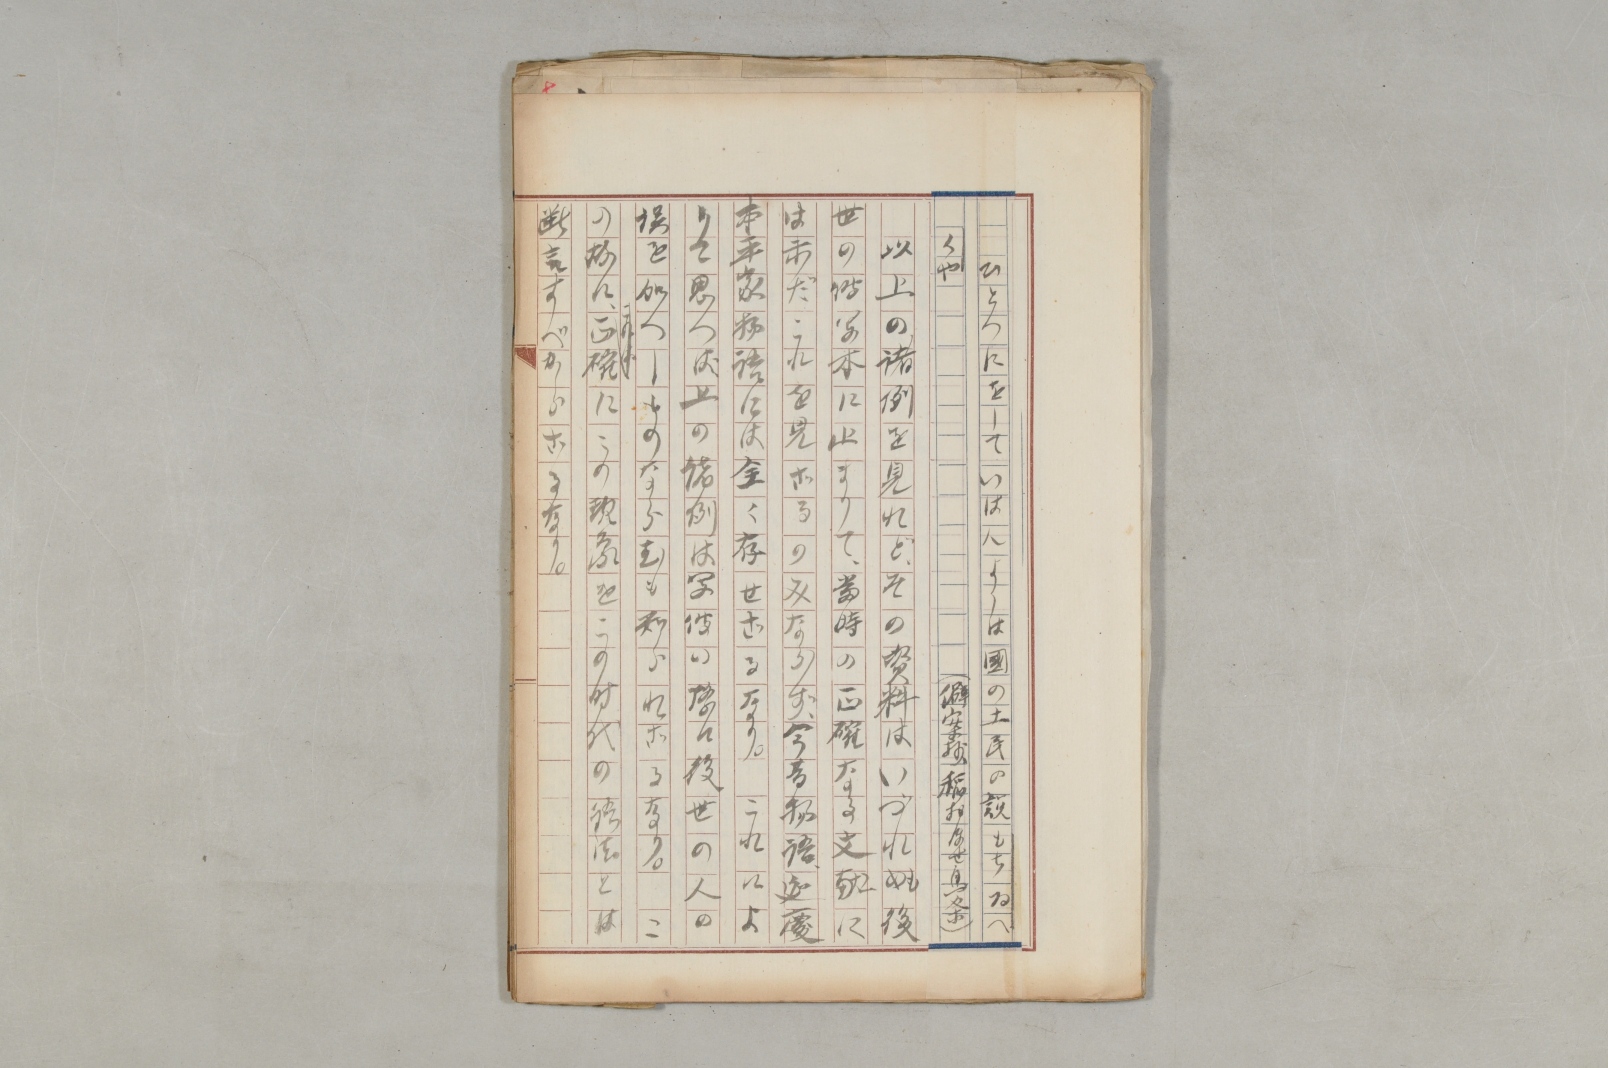 ひとつにをしていは人よしは國の土民の說もちゐへ
くや
(僻案抄 稲おほせ鳥条)
以上の諸例を見れど、その資料はいづれも後
世の傳写本に止まりて、當時の正確なる文獻に
は未だこれを見ざるのみならず、今昔物語、延慶
本平家物語には全く存せざるなり。これによ
りて思へば上の諸例は写傳の際に後世の人の
誤を加へしものならむも知られざるなり。こ
の故に、正確にこの現象をこの時代の語法とは
断言すべからざるなり。